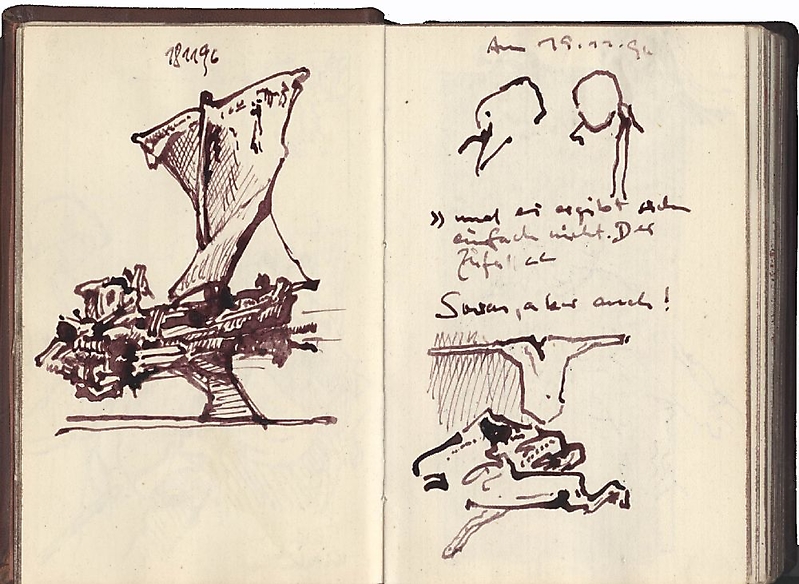 181196
Am 19.11.96
» und es ergibt sich
einfach nicht. Der
Sowas, aber auch!